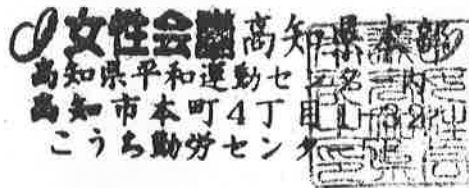 女性会議高知県本部
高知県平和運動センター内
高知市本町4丁目1-32
こうち勤労センター